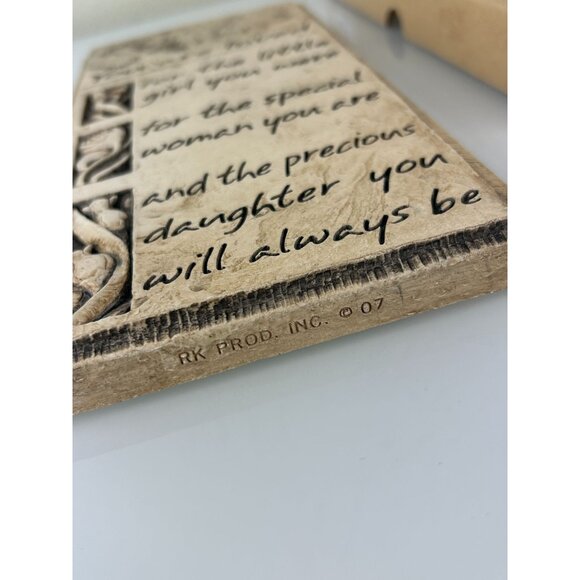 for the little
girl you were
for the special
woman you are
and the precious
daughter you
will always be
RK PROD. INC. © 07